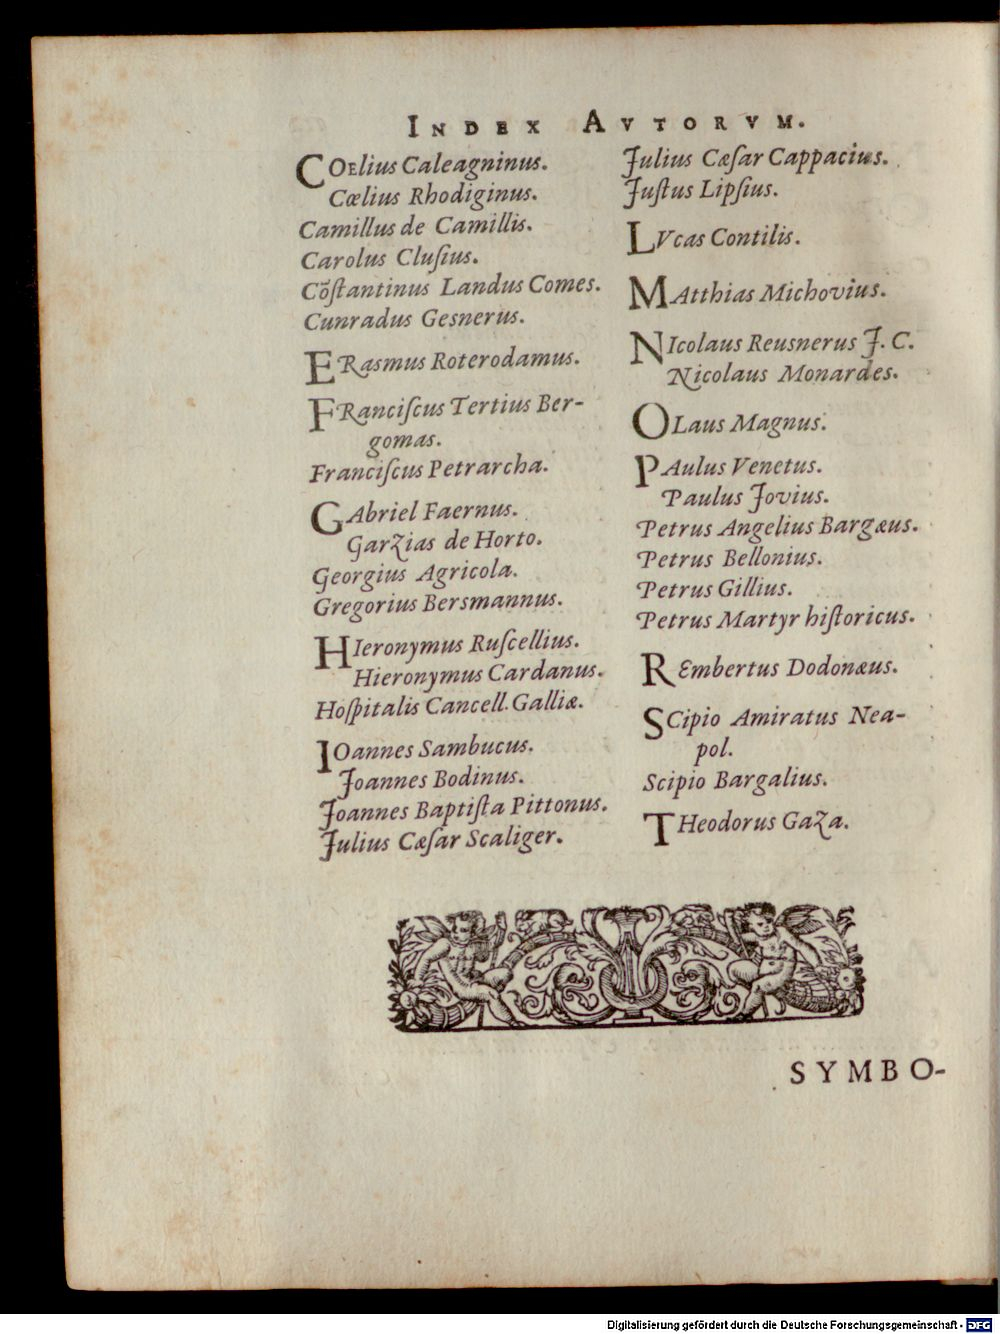 INDEX AVTORVM.
COElius Caleagninus.
Cœlius Rhodiginus.
Camillus de Camillis.
Carolus Cluſius.
Cõſtantinus Landus Comes.
Cunradus Gesnerus.
ERasmus Roterodamus.
FRanciſcus Tertius Ber-
gomas.
Franciſcus Petrarcha.
GAbriel Faernus.
Garzias de Horto.
Georgius Agricola.
Gregorius Bersmannus.
HIeronymus Ruſcellius.
Hieronymus Cardanus.
Hoſpitalis Cancell. Galliæ.
IOannes Sambucus.
Joannes Bodinus.
Joannes Baptiſta Pittonus.
Julius Cæſar Scaliger.
Julius Cæſar Cappacius.
Juſtus Lipſius.
LVcas Contilis.
MAtthias Michovius.
NIcolaus Reusnerus J. C.
Nicolaus Monardes.
OLaus Magnus.
PAulus Venetus.
Paulus Jovius.
Petrus Angelius Bargæus.
Petrus Bellonius.
Petrus Gillius.
Petrus Martyr hiſtoricus.
REmbertus Dodonæus.
SCipio Amiratus Nea-
pol.
Scipio Bargalius.
THeodorus Gaza.
SYMBO-
Digitalisierung gefördert durch die Deutsche Forschungsgemeinschaft - DFG